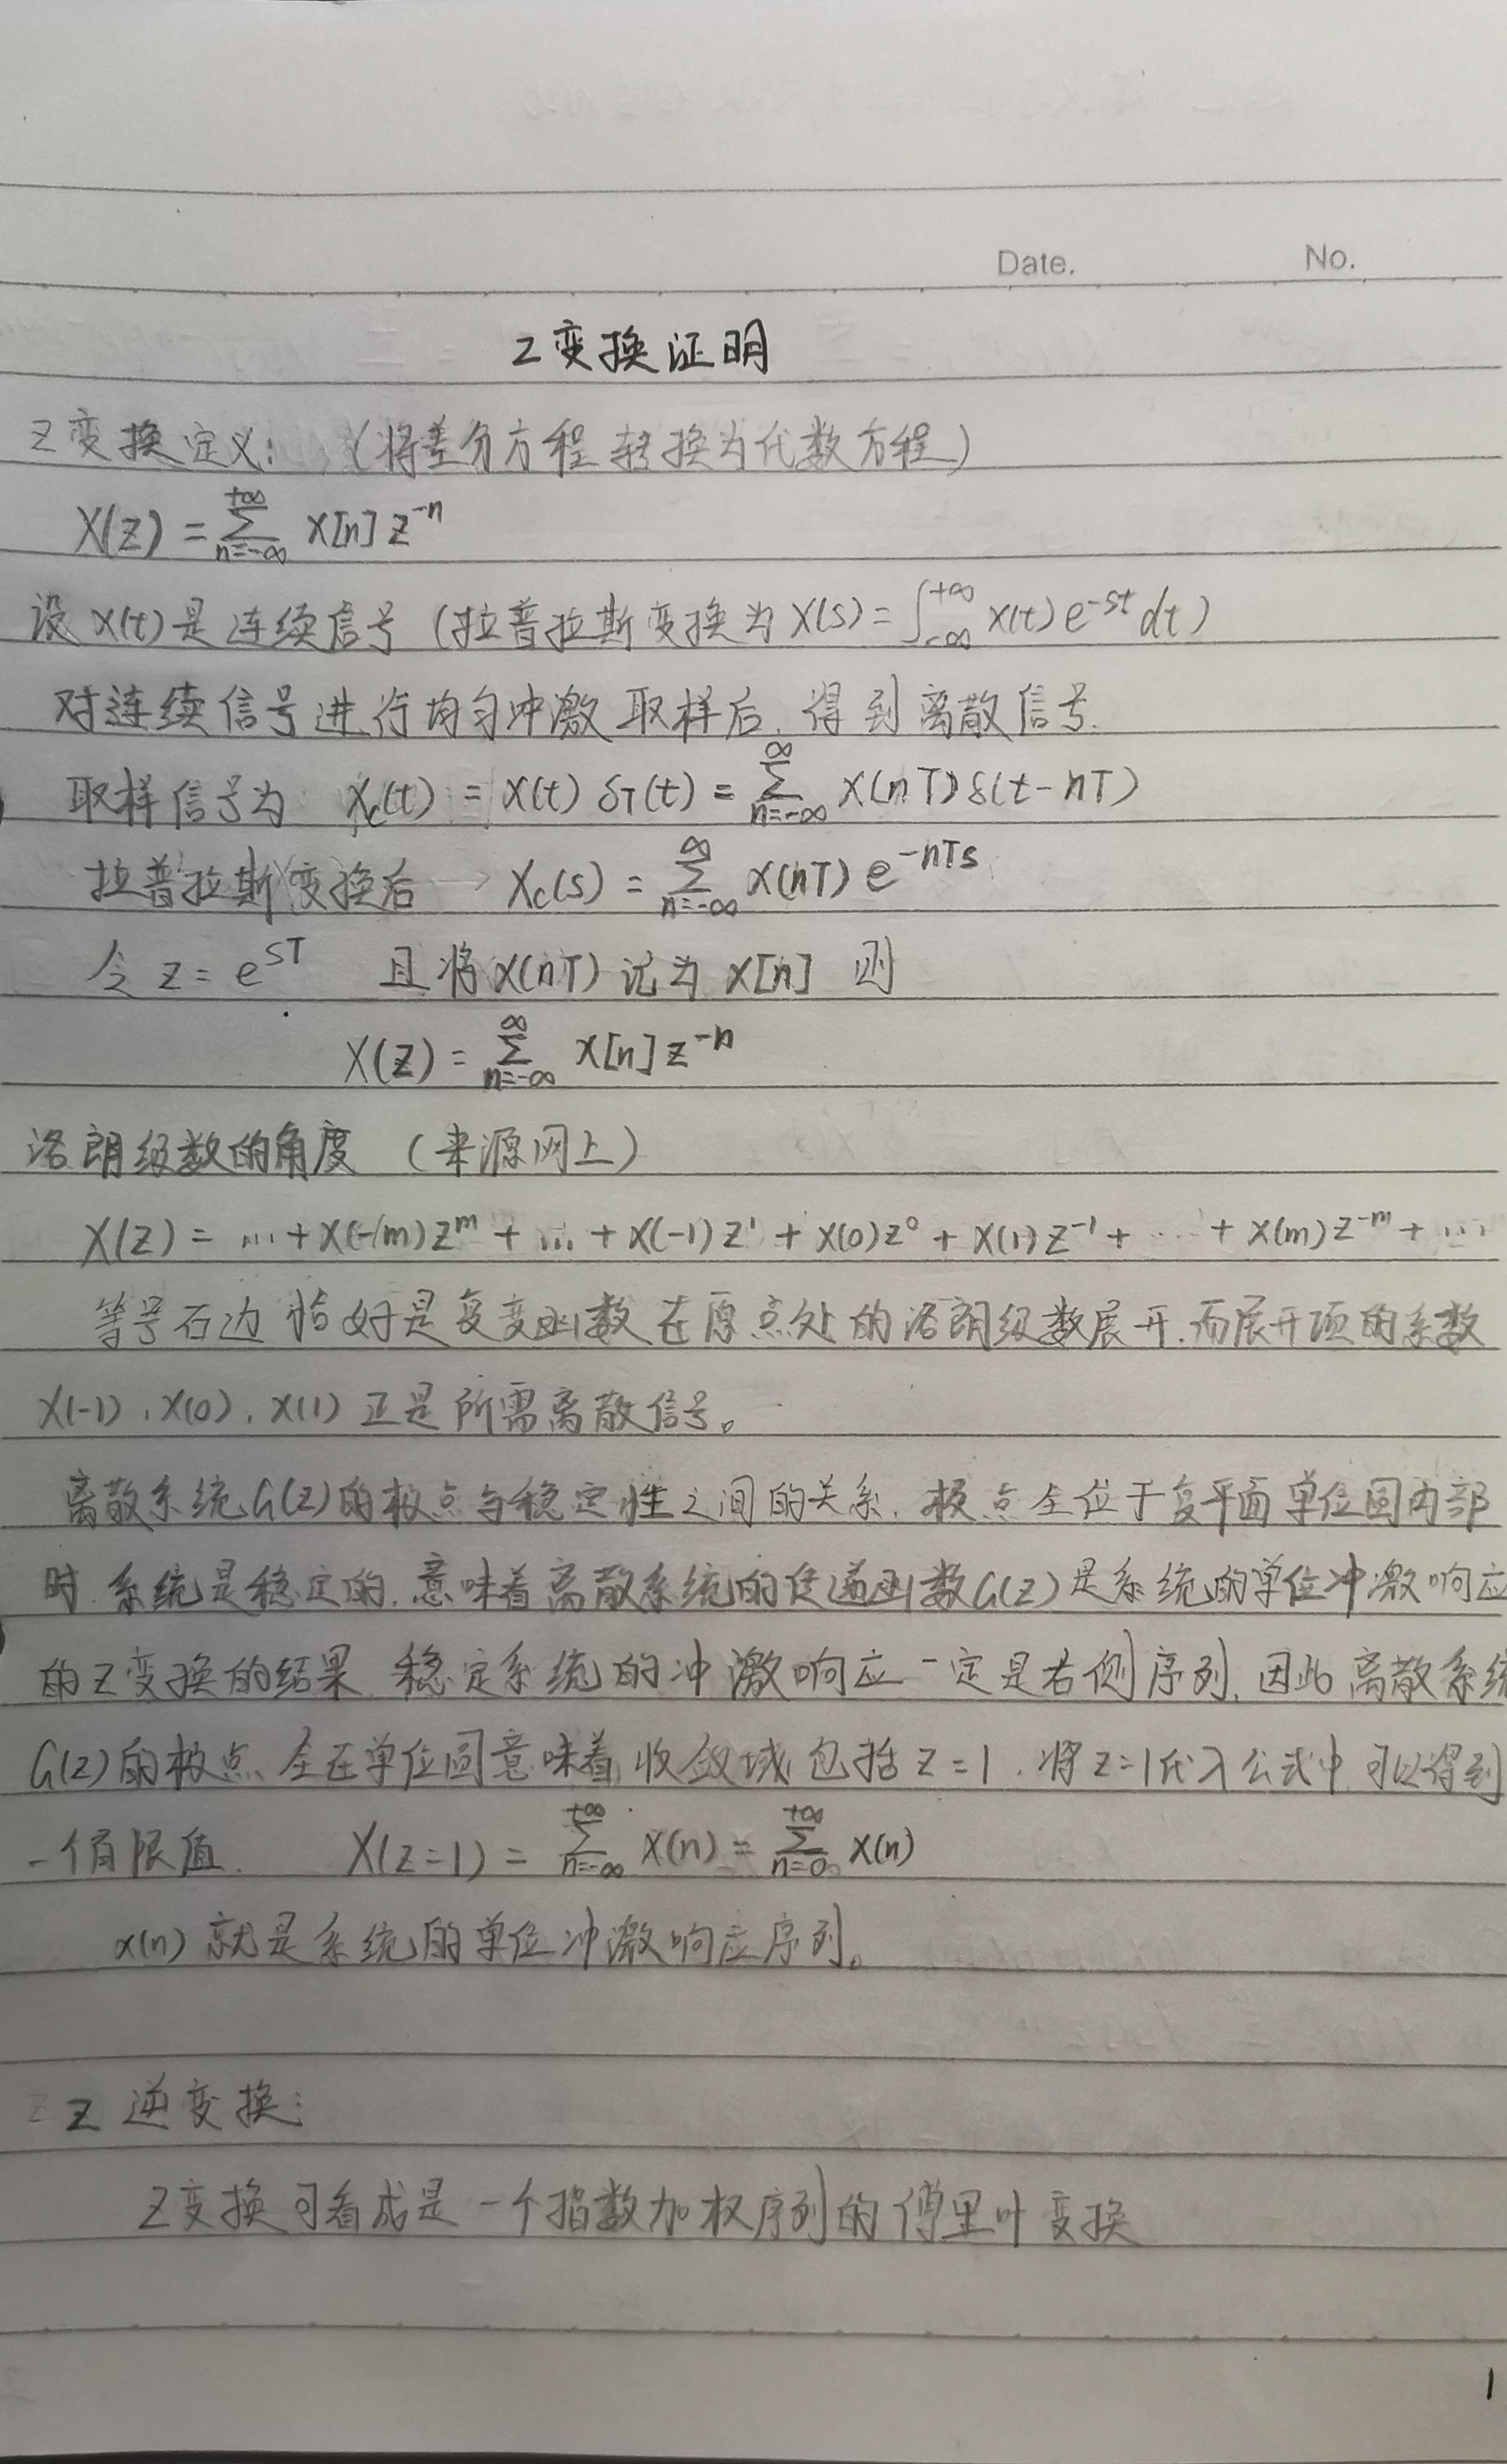 Date. No.
Z变换证明
Z变换定义: (将差分方程转换为代数方程)
X(z) = ∑_{n=-∞}^{+∞} x[n] z^{-n}
设x(t)是连续信号 (拉普拉斯变换为 X(s) = ∫_{-∞}^{+∞} x(t) e^{-st} dt)
对连续信号进行均匀冲激取样后, 得到离散信号.
取样信号为 x_c(t) = x(t) δ_T(t) = ∑_{n=-∞}^{∞} x(nT) δ(t-nT)
拉普拉斯变换后 → X_c(s) = ∑_{n=-∞}^{∞} x(nT) e^{-nTs}
令 z = e^{sT} 且将x(nT)记为 x[n] 则
X(z) = ∑_{n=-∞}^{∞} x[n] z^{-n}
洛朗级数的角度 (来源网上)
X(z) = … + x(-m)z^m + … + x(-1)z^1 + x(0)z^0 + x(1)z^{-1} + … + x(m)z^{-m} + …
等号右边恰好是复变函数在原点处的洛朗级数展开, 而展开项的系数
x(-1), x(0), x(1) 正是所需离散信号。
离散系统G(z)的极点与稳定性之间的关系. 极点全位于复平面单位圆内部
时, 系统是稳定的, 意味着离散系统的传递函数G(z)是系统的单位冲激响应
的Z变换的结果, 稳定系统的冲激响应一定是右侧序列, 因此离散系统
G(z)的极点全在单位圆意味着收敛域包括z=1, 将z=1代入公式中可以得到
一个有限值. X(z=1) = ∑_{n=-∞}^{+∞} x(n) = ∑_{n=0}^{+∞} x(n)
x(n)就是系统的单位冲激响应序列。
Z逆变换:
Z变换可看成是一个指数加权序列的傅里叶变换
1